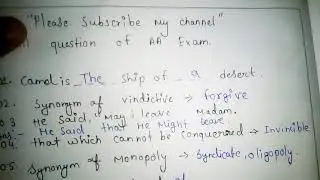 "Please Subscribe My channel"
question of AA Exam.
01. Camel is The ship of a desert.
02. Synonym of vindictive → forgive
0.3 He said, "May i leave Madam.
Ans:- He said that He Might leave
04. that which cannot be conquered → Invincible
05. Synonym of Monopoly → Syndicate, oligopoly.